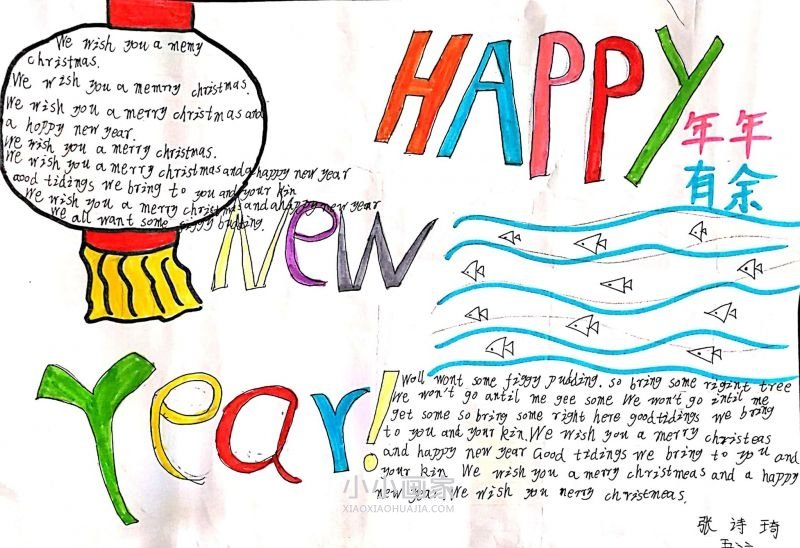 We wish you a memy
christmas.
We wish you a memrry christmas.
We wish you a merry christmas and
a hoppy new year.
We wish you a merry christmas.
We wish you a merry christmas and a happy new year
Good tidings we bring to you and your kin
We wish you a merry christmas and a happy new year
We all want some figgy pudding.
HAPPY
年年
有余
New
Year!
Wall wont some figgy pudding. so bring some right tree
We won't go antil me gee some We won't go intil me
get some so bring some right here good tidings we bring
to you and your kin. We wish you a merry christeas
and happy new year Good tidings we bring to you and
your kin We wish you a merry christmeas and a happy
new year. We wish you merry christmeas.
小小画家
XIAOXIAOHUAJIA.COM
张诗琦